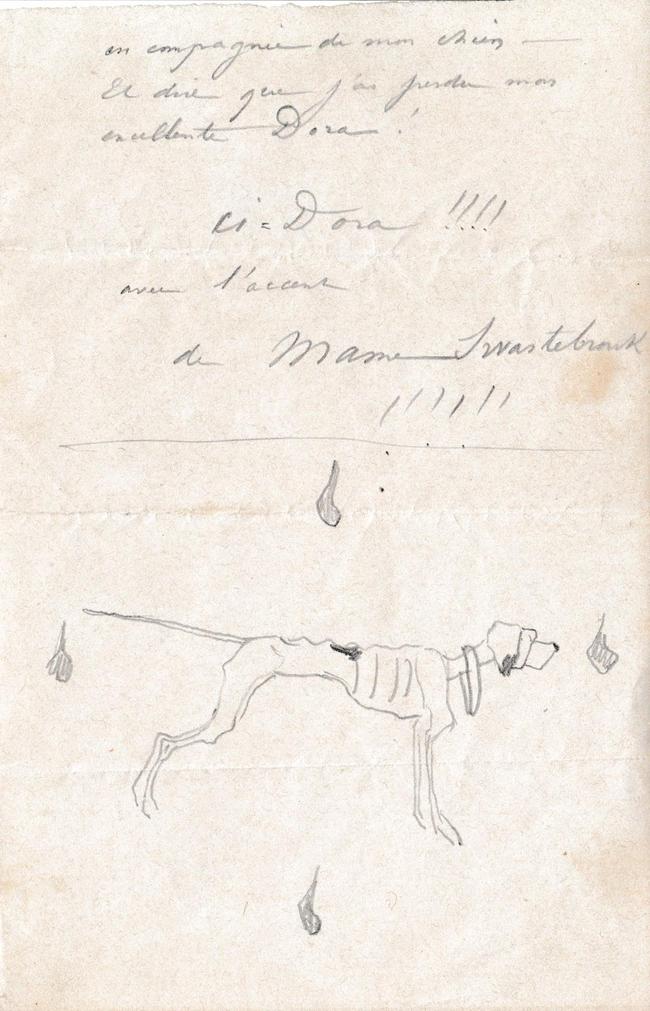 en compagnie de mon chien —
Et dire que j'ai perdu mon
excellente Dora !
ci = Dora !!!!
avec l'accent
de Mame Swastebrouk
!!!!!!